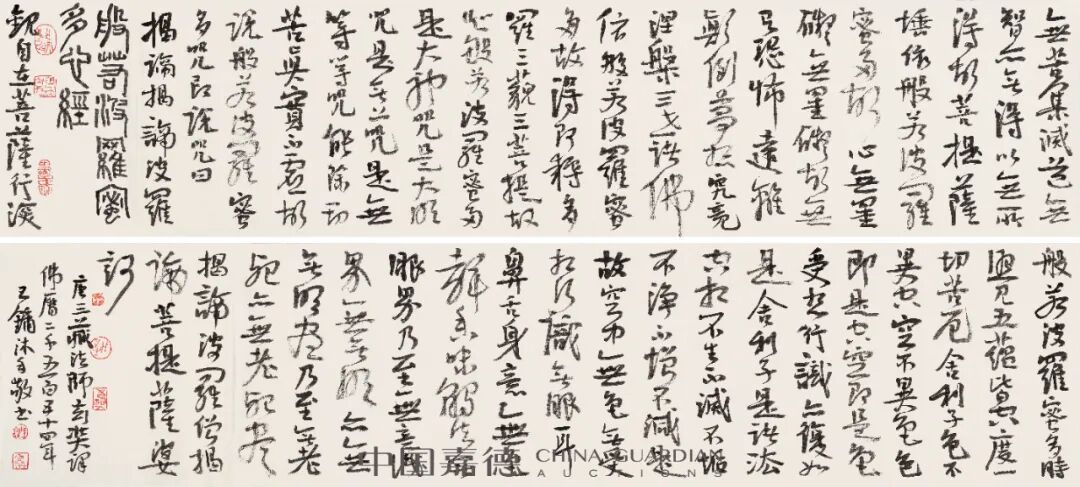 無苦集滅道無
智亦無得以無所
得故菩提薩
埵依般若波羅
蜜多故心無罣
礙無罣礙故無
有恐怖遠離
顛倒夢想究竟
涅槃三世諸佛
依般若波羅蜜
多故得阿耨多
羅三藐三菩提故
知般若波羅蜜多
是大神咒是大明
咒是無上咒是無
等等咒能除一切
苦真實不虛故
說般若波羅蜜
多咒即說咒曰
揭諦揭諦波羅
般若波羅蜜
多心經
觀自在菩薩行深
般若波羅蜜多時
照見五蘊皆空度一
切苦厄舍利子色不
異空空不異色色
即是空空即是色
受想行識亦復如
是舍利子是諸法
空相不生不滅不垢
不淨不增不減是
故空中無色無受
想行識無眼耳
鼻舌身意無色
聲香味觸法無
眼界乃至無意識
界無無明亦無
無明盡乃至無老
死亦無老死盡
揭諦波羅僧揭
諦菩提薩婆
訶
唐三藏法師玄奘譯
佛曆二千五百五十四年
王鏞沐手敬書
中国嘉德 CHINA GUARDIAN
AUCTIONS